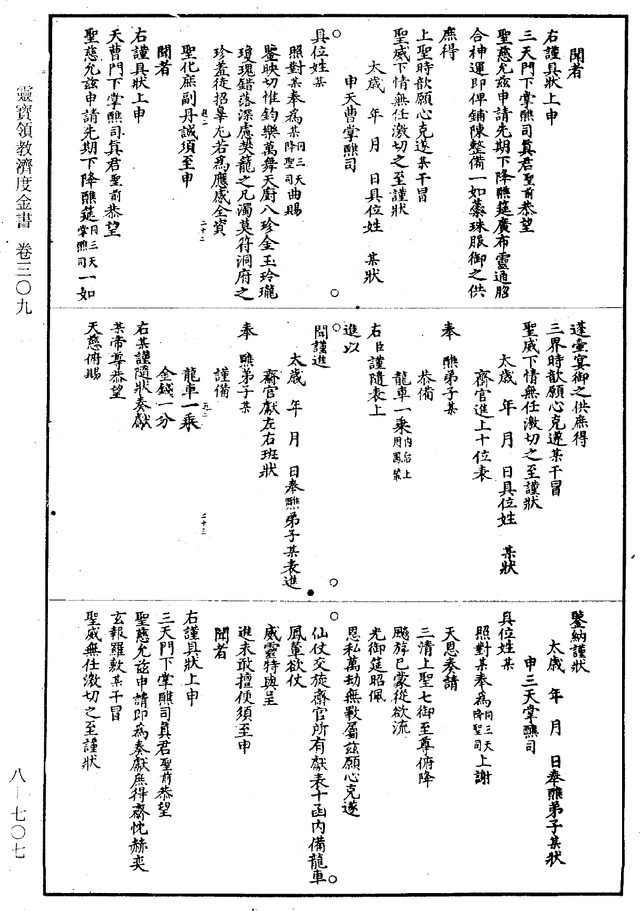 聞者
右謹具狀上申
三天門下掌醮司真君聖前恭望
聖慈允茲申請先期下降醮筵廣布靈通昭
合神運即俾鋪陳整備一如蘂珠服御之供
庶得
上聖時歆願心克遂某干冒
聖威下情無任激切之至謹狀
太歲 年 月 日具位姓 某狀
申天曹掌醮司
具位姓某
照對某奉為某同三天降聖司曲賜
鑒映切惟鈞樂萬舞天廚八珍金玉玲瓏
瓊瑰錯落深慮樊籠之凡濁莫符洞府之
珍羞徒招辠尤若為應感全資
聖化庶副丹誠須至申
聞者
右謹具狀上申
天曹門下掌醮司真君聖前恭望
聖慈允茲申請先期下降醮筵同三天掌醮司一如
蓬壺宴御之供庶得
三界時歆願心克遂某干冒
聖威下情無任激切之至謹狀
太歲 年 月 日具位姓 某狀
齋官進上十位表
奉 醮弟子某
恭備
龍車一乘內后上用鳳輦
右臣謹隨表上
進以
聞謹進
太歲 年 月 日奉醮弟子某表進
齋官獻左右班狀
奉 醮弟子某
謹備
龍車一乘
金錢一分
右某謹隨狀奏獻
某帝尊恭望
天慈俯賜
鑒納謹狀
太歲 年 月 日奉醮弟子某狀
申三天掌醮司
具位姓某
照對某奏為同三天降聖司上謝
天恩奏請
三清上聖七御至尊俯降
飈斿已蒙從欲流
光御筵昭佩
恩私萬劫無斁屬茲願心克遂
仙仗交旋齋官所有獻表十函內備龍車
鳳輦欲仗
威靈特與呈
進未敢擅便須至申
聞者
右謹具狀上申
三天門下掌醮司真君聖前恭望
聖慈允茲申請即為奏獻庶得齋忱赫奕
玄報羅敷某干冒
聖威無任激切之至謹狀
靈寶領教濟度金書 卷三〇九
八－七〇七